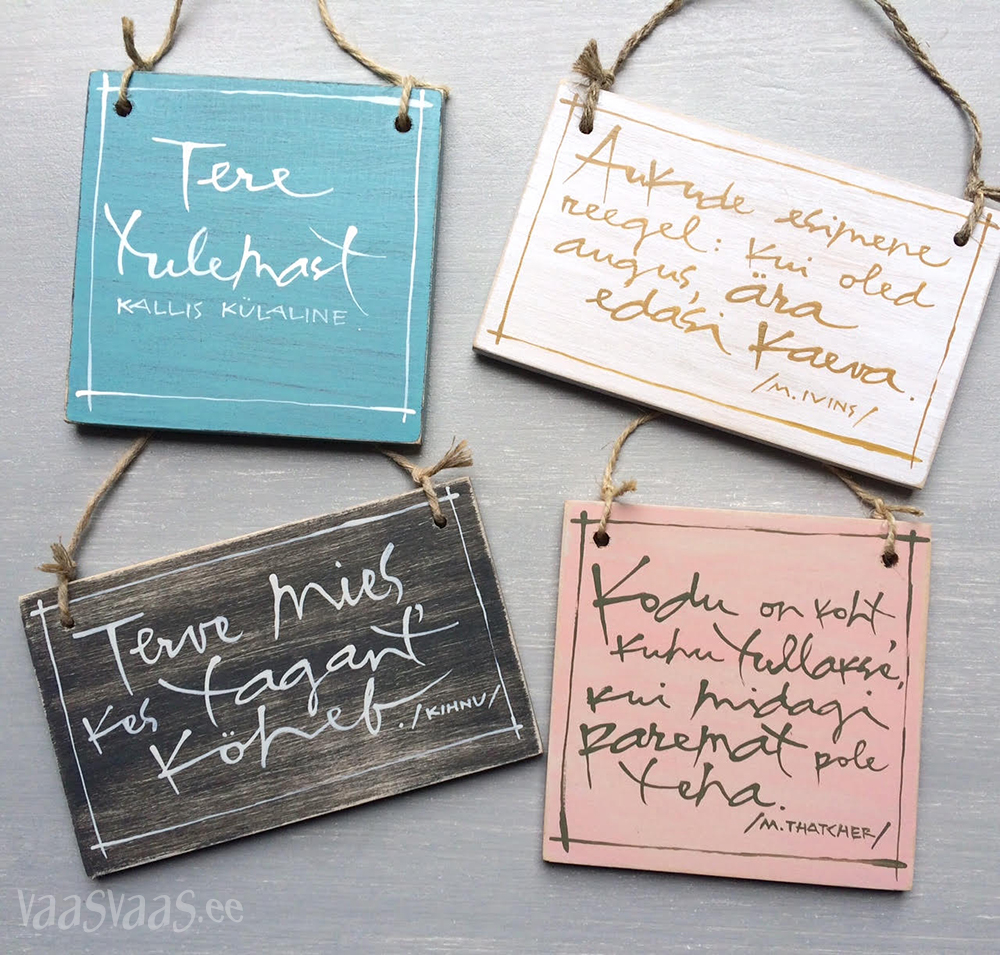 Tere
Tulemast
KALLIS KÜLALINE.
Aukude esimene
reegel: kui oled
augus, ära
edasi kaeva.
/M. IVINS/
Terve mies,
kes tagant
köheb. /KIHNU/
Kodu on koht,
kuhu tullakse,
kui midagi
paremat pole
teha.
/M. THATCHER/
vaasvaas.ee